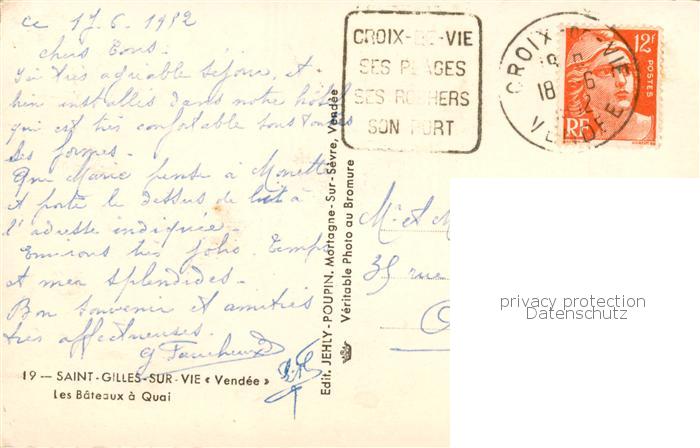 ce 17.6.1952
chers Tous.
Ici très agréable séjour, et
bien installés dans notre hôtel
qui est très confortable sous toutes
ses formes.
Que Marie pense à Monette
et porte le dessus de lit à
l'adresse indiquée.
Environs très jolis. Temps
et mer splendides.
Bon souvenir et amitiés
très affectueuses.
19 — SAINT-GILLES-SUR-VIE « Vendée »
Les Bâteaux à Quai
Edit. JEHLY-POUPIN, Mortagne-Sur-Sèvre, Vendée
Véritable Photo au Bromure
CROIX-DE-VIE
SES PLAGES
SES ROCHERS
SON PORT
CROIX-DE-VIE
18 6
VENDEE
12F
POSTES
RF
Mr et M
35 rue
privacy protection
Datenschutz